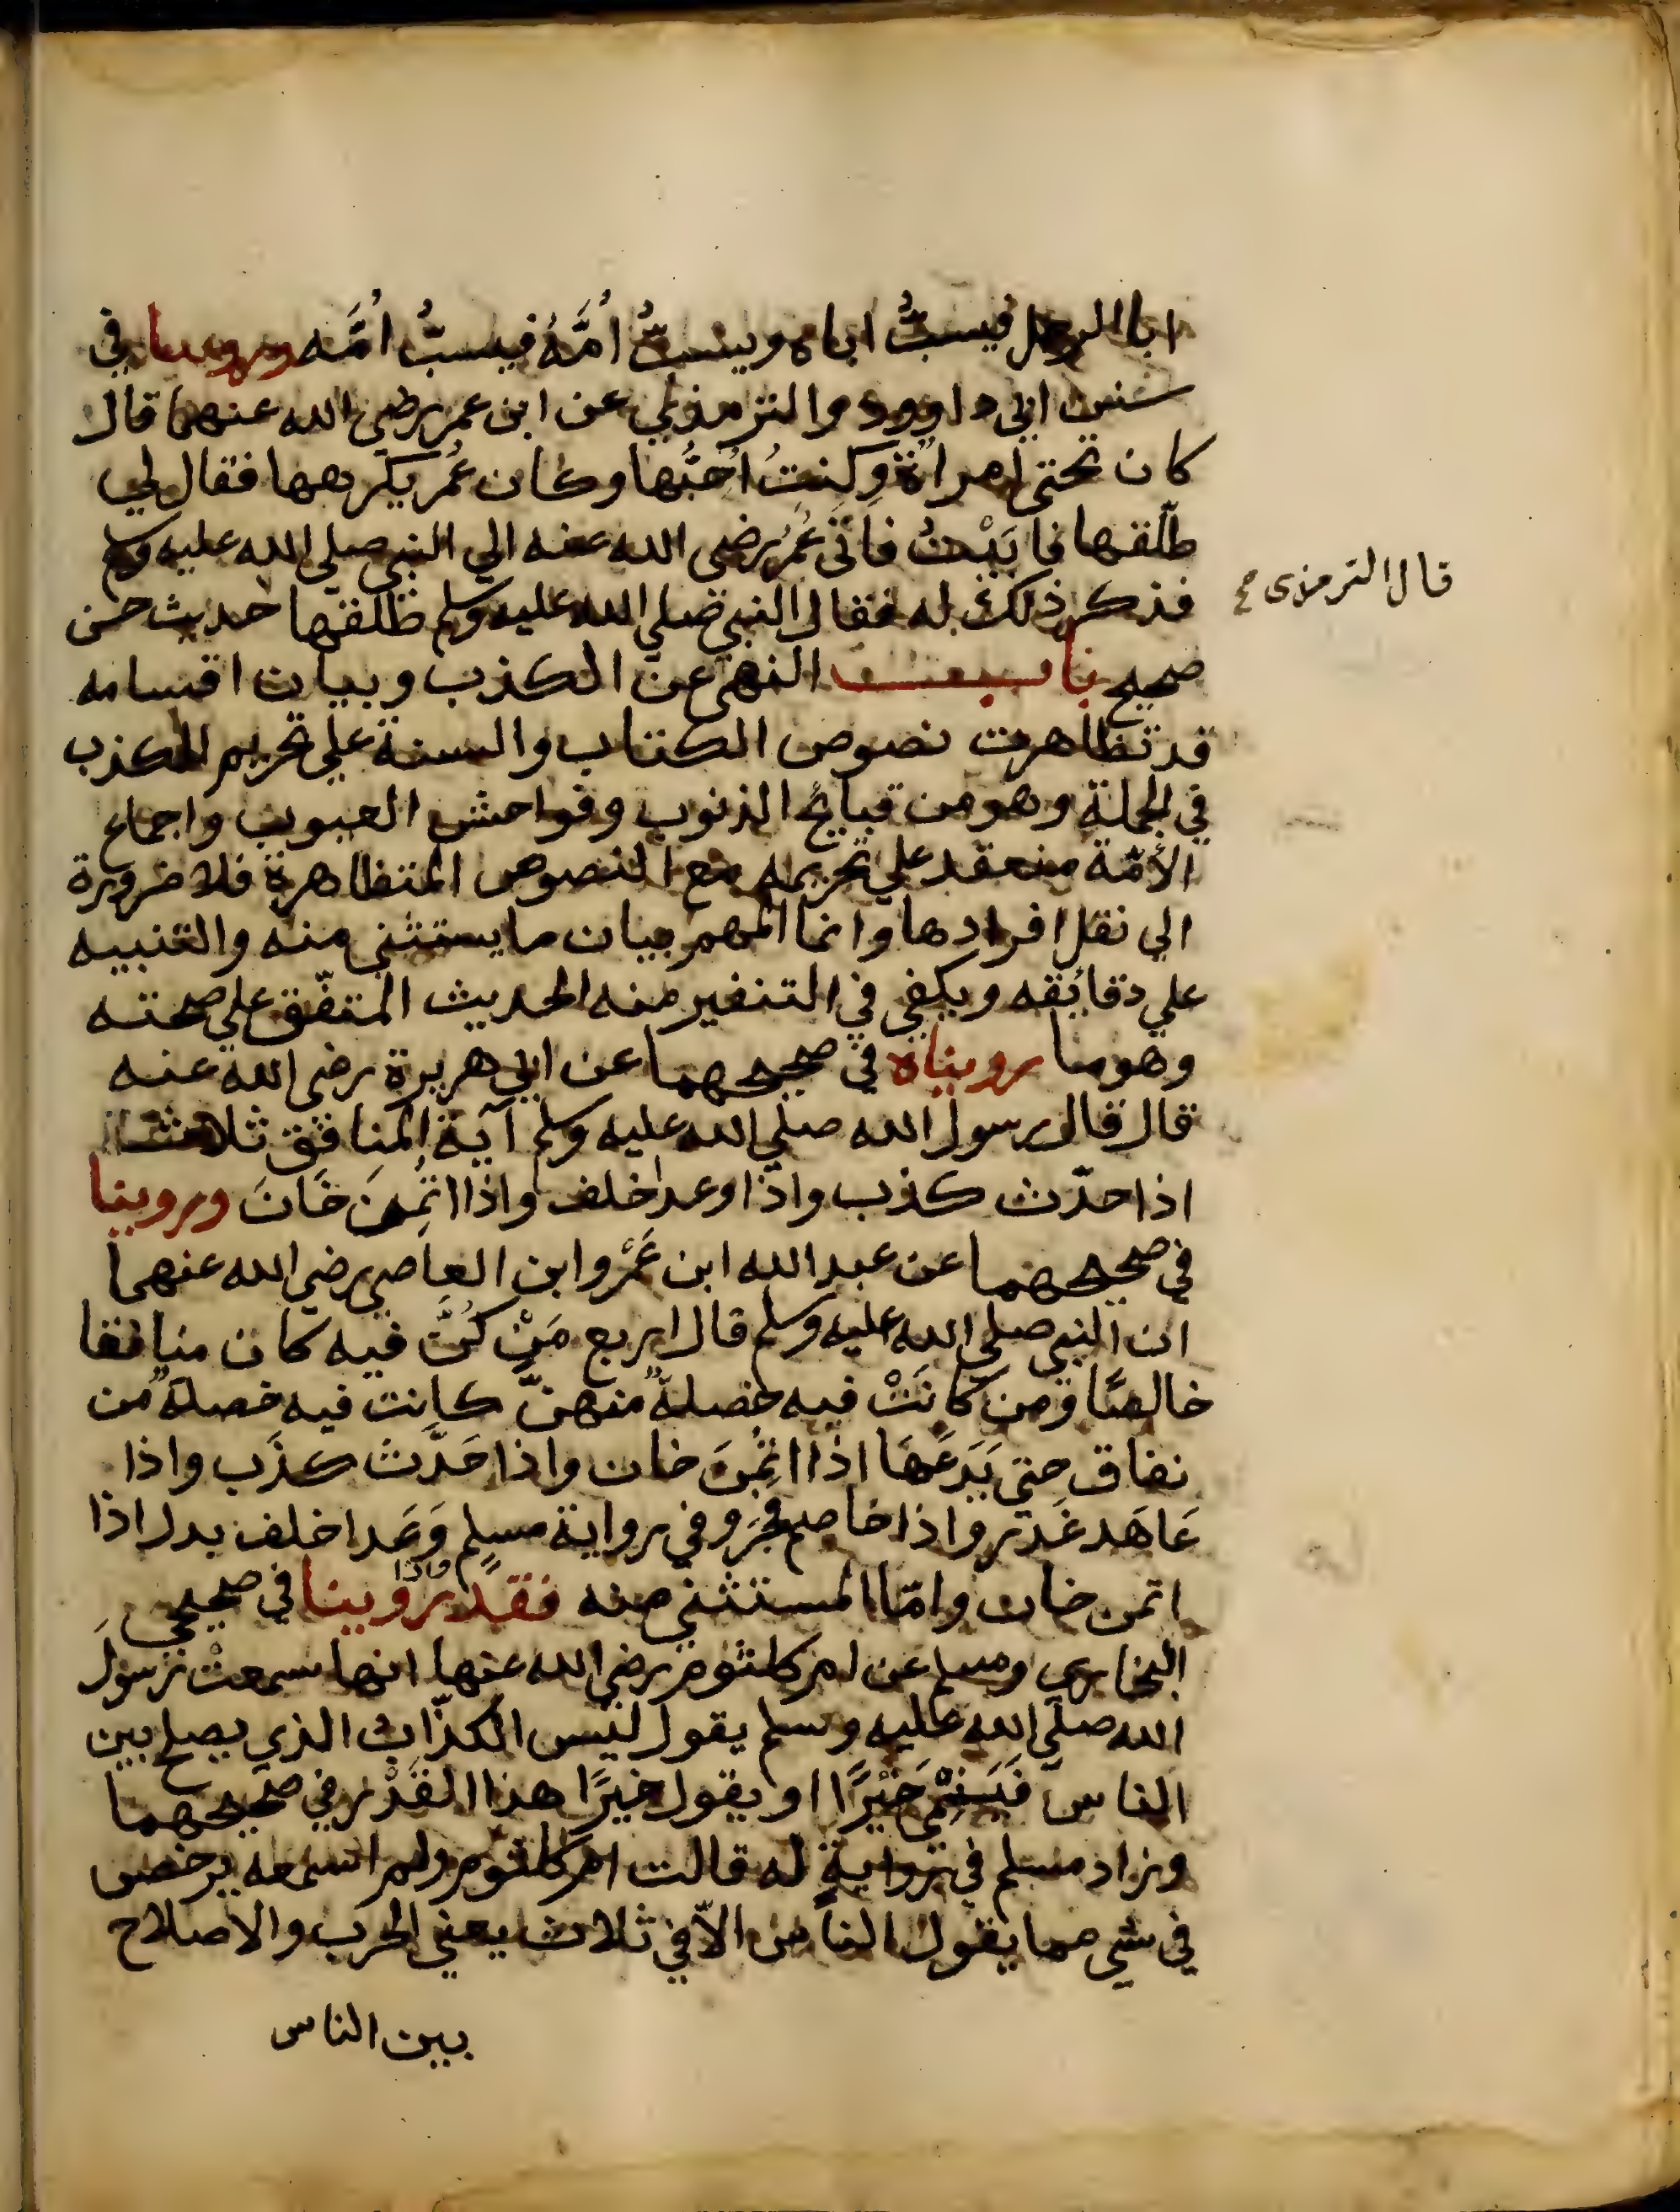 ابا الرجل فيسبُّ اباه ويسبُّ اُمَّهُ فيسبُّ اُمَّه وروينا في
سنن ابي داوود والترمذي عن ابن عمر رضي الله عنهما قال
كان تحتي امراة وكنتُ اُحِبُّها وكان عُمر يكرهها فقال لي
طلّقها فابَيْتُ فاتى عُمَرُ رضي الله عنه الي النبي صلي الله عليه وسلم
فذكر ذلك له فقال النبي صلي الله عليه وسلم طلقها حديث حسن
قال الترمذى
صحيح باب النهي عن الكذب وبيان اقسامه
قد تظاهرت نصوص الكتاب والسنة علي تحريم الكذب
في الجملة وهو من قبايح الذنوب وفواحش العيوب واجماع
الأمّة منعقد علي تحريمه مع النصوص المتظاهرة فلا ضرورة
الي نقل افرادها وانما المهم بيان ما يستثني منه والتنبيه
علي دقائقه ويكفي في التنفير منه الحديث المتفّق علي صحته
وهو ما رويناه في صحيحهما عن ابي هريرة رضي الله عنه
قال قال رسول الله صلي الله عليه وسلم آية المنافق ثلاث
اذا حدّث كذب واذا وعد اخلف واذا اتُمِنَ خَانَ وروينا
في صحيحهما عن عبد الله ابن عَمْرو ابن العاصي رضي الله عنهما
ان النبي صلي الله عليه وسلم قال اربع مَنْ كُنَّ فيه كان منافقا
خالصًا ومن كانَتْ فيه خصلةٌ منهنّ كانت فيه خصلةٌ من
نفاق حتي يَدَعَهَا اذا اتُمِنَ خان واذا حَدَّث كذَب واذا
عَاهَد غَدَر واذا خاصم فجَرَ وفي رواية مسلم وَعَد اخلف بدل اذا
واذا
اتمن خان وامّا المستثني منه فقد روينا في صحيحي
البخاري ومسلم عن ام كلثوم رضي الله عنها انها سمعتْ رسولَ
الله صلّي الله عليه وسلم يقول ليس الكذّاب الذي يصلح بين
الناس فَيَنْمِي خَيْرًا او يقول خيرًا هذا القَدْر في صحيحهما
وزاد مسلم في روايةٍ له قالت ام كلثوم ولم اسمعه يرخص
في شي مما يقول الناس الاّ في ثلاث يعني الحرب والاصلاح
بين الناس